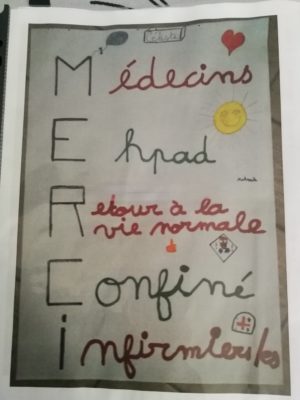 Médecins
Ehpad
Retour à la
vie normale
Confiné
infirmiers/es